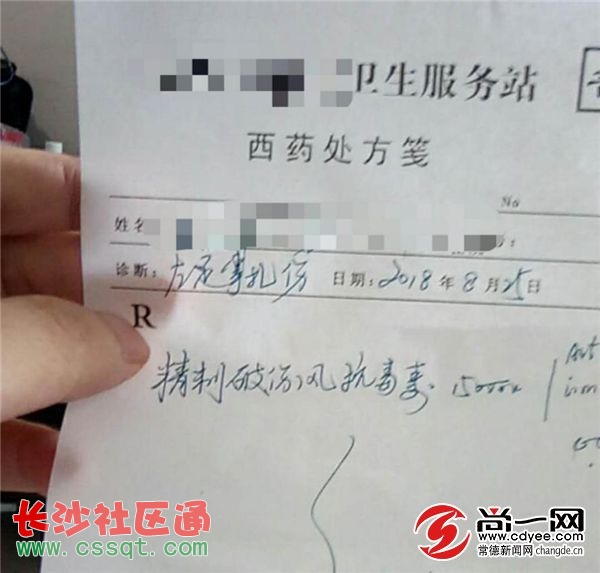 卫生服务站
西药处方笺
No
姓名
诊断：左足掌扎伤 日期：2018年8月25日
R
精制破伤风抗毒素
长沙社区通
www.cssqt.com
尚一网
www.cdyee.com
常德新闻网 changde.cn